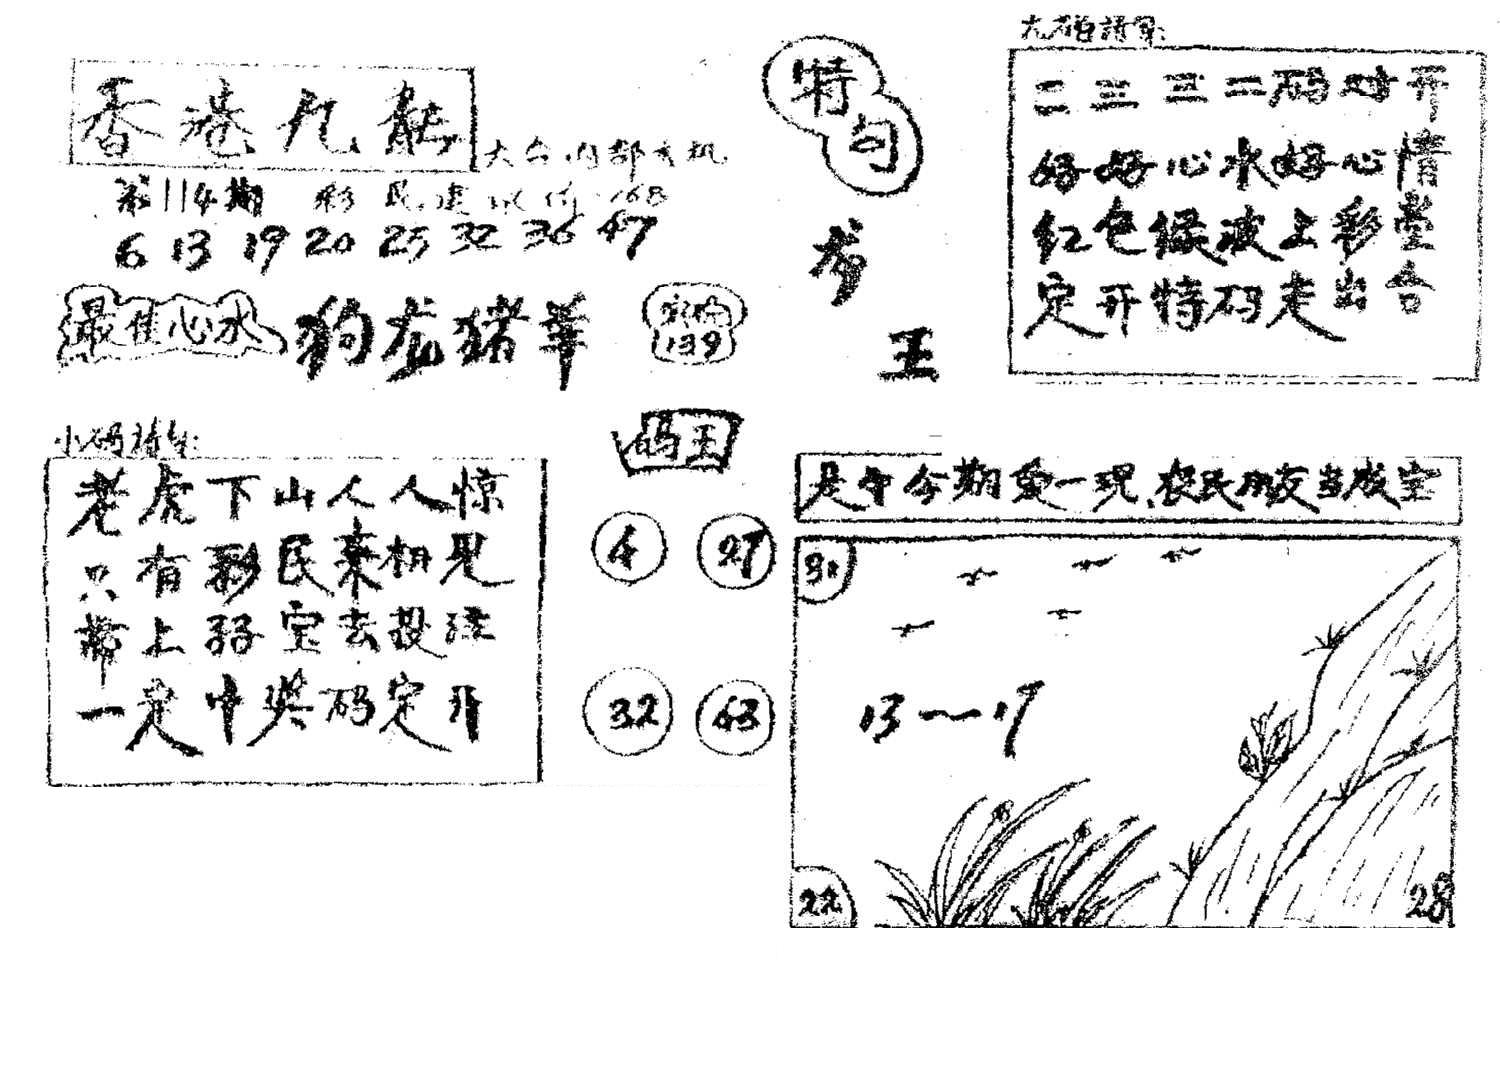 香港九龍
大台内部玄机
第114期 彩民
6 13 19 20 25 32 36 47
最佳心水 狗龙猪羊
139
特句
王
二三三二码对开
好好心水好心情
红色绿波上彩堂
定开特码走出台
小码诗句:
老虎下山人人惊
只有彩民来相见
带上弱宝去投注
一定中奖码定开
码王
4 27
32 43
是午今期爱一现,农民朋友当成宝
31
13～17
22
28